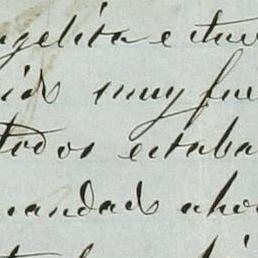 ngelita estuv
ido muy fue
todos estaba
mandado aho